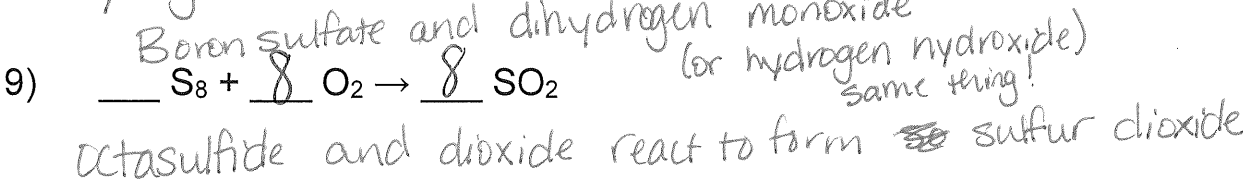 Boron sulfate and dihydrogen monoxide
(or hydrogen hydroxide)
same thing!
9) ___ S8 + 8 O2 → 8 SO2
octasulfide and dioxide react to form sulfur dioxide